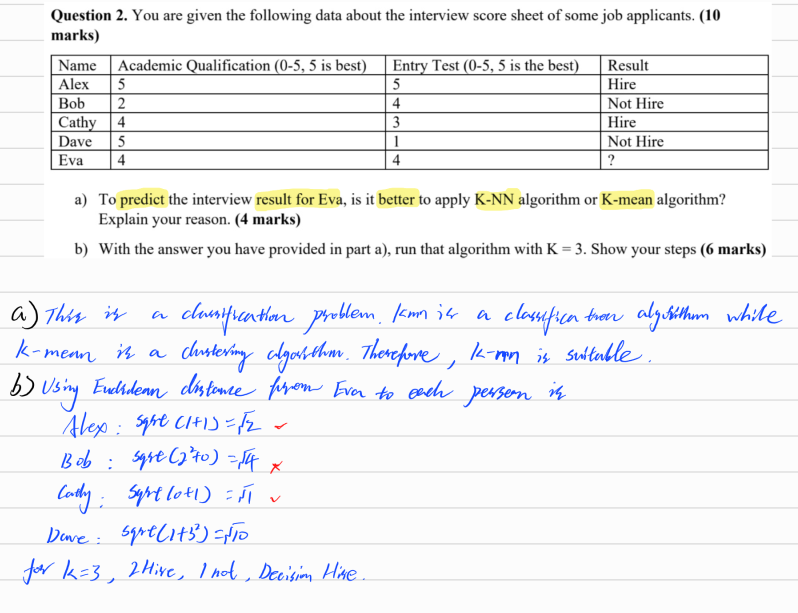 Question 2. You are given the following data about the interview score sheet of some job applicants. (10
marks)
Name Academic Qualification (0-5, 5 is best) Entry Test (0-5, 5 is the best) Result
Alex 5 5 Hire
Bob 2 4 Not Hire
Cathy 4 3 Hire
Dave 5 1 Not Hire
Eva 4 4 ?
a) To predict the interview result for Eva, is it better to apply K-NN algorithm or K-mean algorithm?
Explain your reason. (4 marks)
b) With the answer you have provided in part a), run that algorithm with K = 3. Show your steps (6 marks)
a) This is a classification problem. knn is a classification algorithm while
k-mean is a clustering algorithm. Therefore, k-nn is suitable.
b) Using Euclidean distance from Eva to each person is
Alex: sqrt (1+1) = √2 ✓
Bob: sqrt (2²+0) = √4 ✗
Cathy: sqrt (0+1) = √1 ✓
Dave: sqrt (1+3²) = √10
for k=3, 2 Hire, 1 not, Decision Hire.